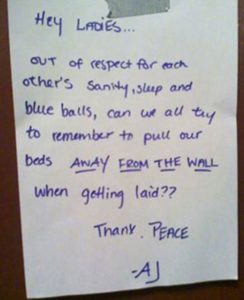 Hey LADIES...
OUT of respect for each
other's sanity, sleep and
blue balls, can we all try
to remember to pull our
beds AWAY FROM THE WALL
when getting laid??
Thank. PEACE
-AJ